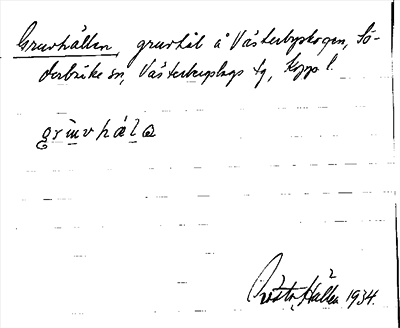 Gruvhålen, gruvhål å Västerbyskogen, Sö-
derbärke sn, Västerbergslags tg, Kopp l.
grùvhála
Gösta Hallén 1934.